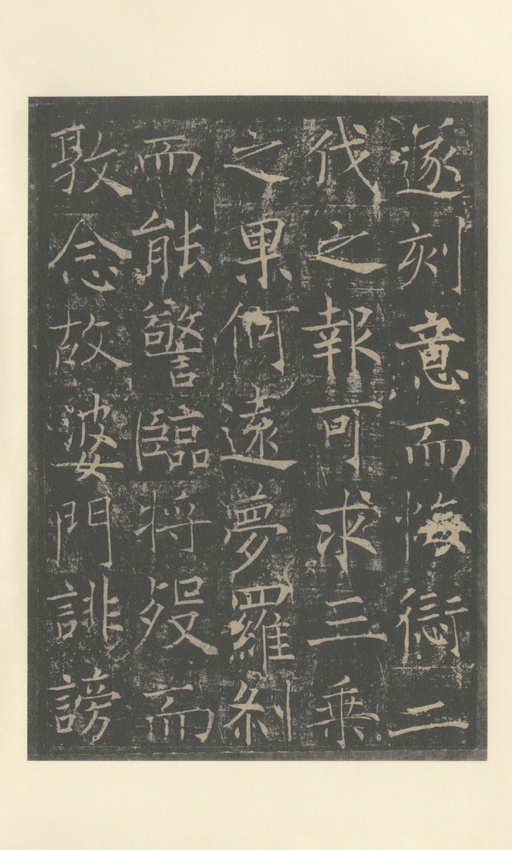 遂刻意而悔愆二
伐之報可求三乗
之果何遠夢羅刹
而能驚臨將歿而
敦念故婆門誹謗